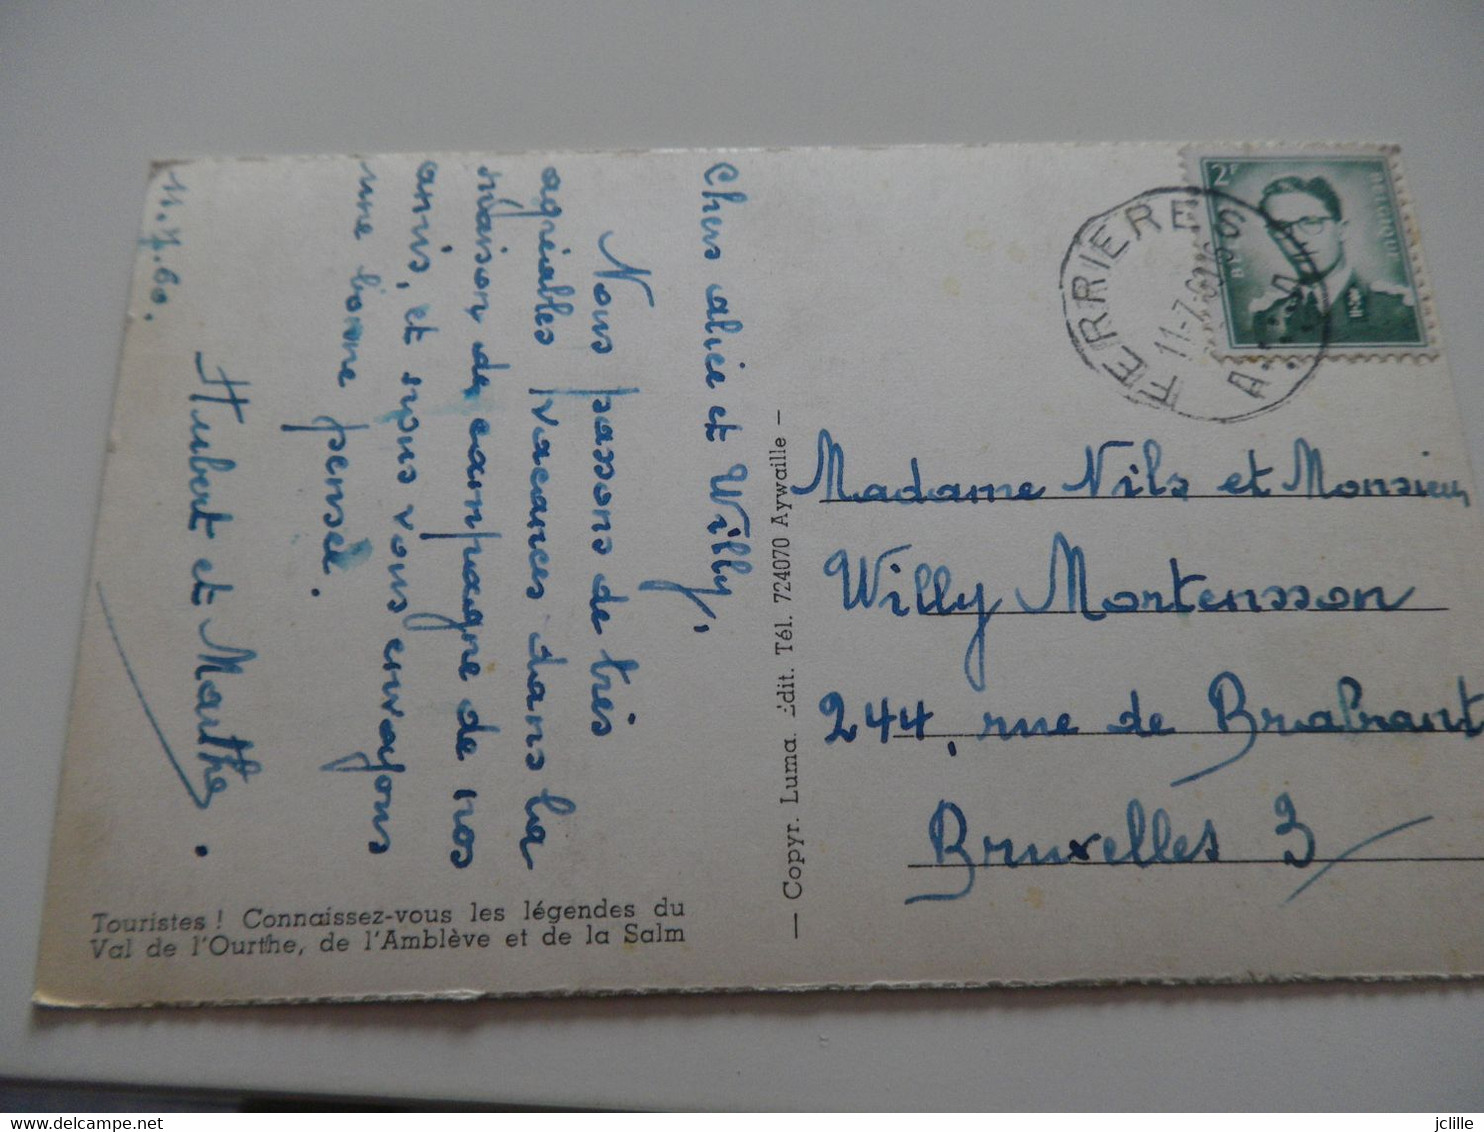 Chers alice et Willy,
Nous passons de très
agréables vacances dans la
maison de campagne de nos
amis, et nous vous envoyons
une bonne pensée.
11.7.60.
Hubert et Marthe.
Touristes ! Connaissez-vous les légendes du
Val de l'Ourthe, de l'Amblève et de la Salm
— Copyr. Luma. Édit. Tél. 724070 Aywaille —
FERRIERES
11-7-60
A A
2F
BELGIQUE
Madame Nils et Monsieur
Willy Mortensson
244, rue de Brabant
Bruxelles 3
delcampe.net
jclille